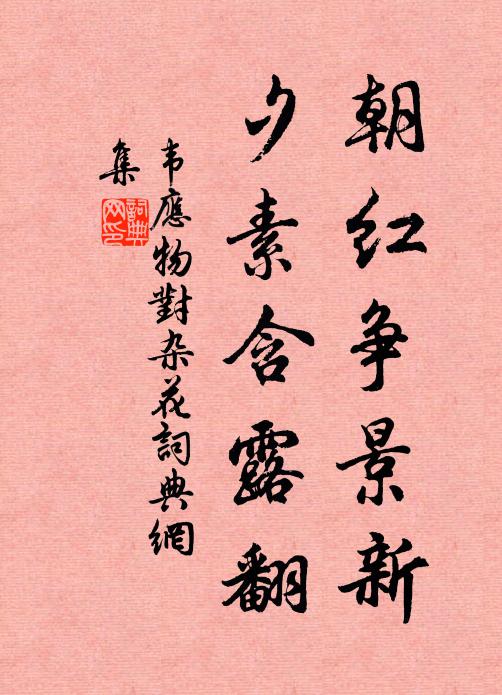 朝红争景新
夕素含露翻
韦應物對杂花詞典網
集
詞典
网印